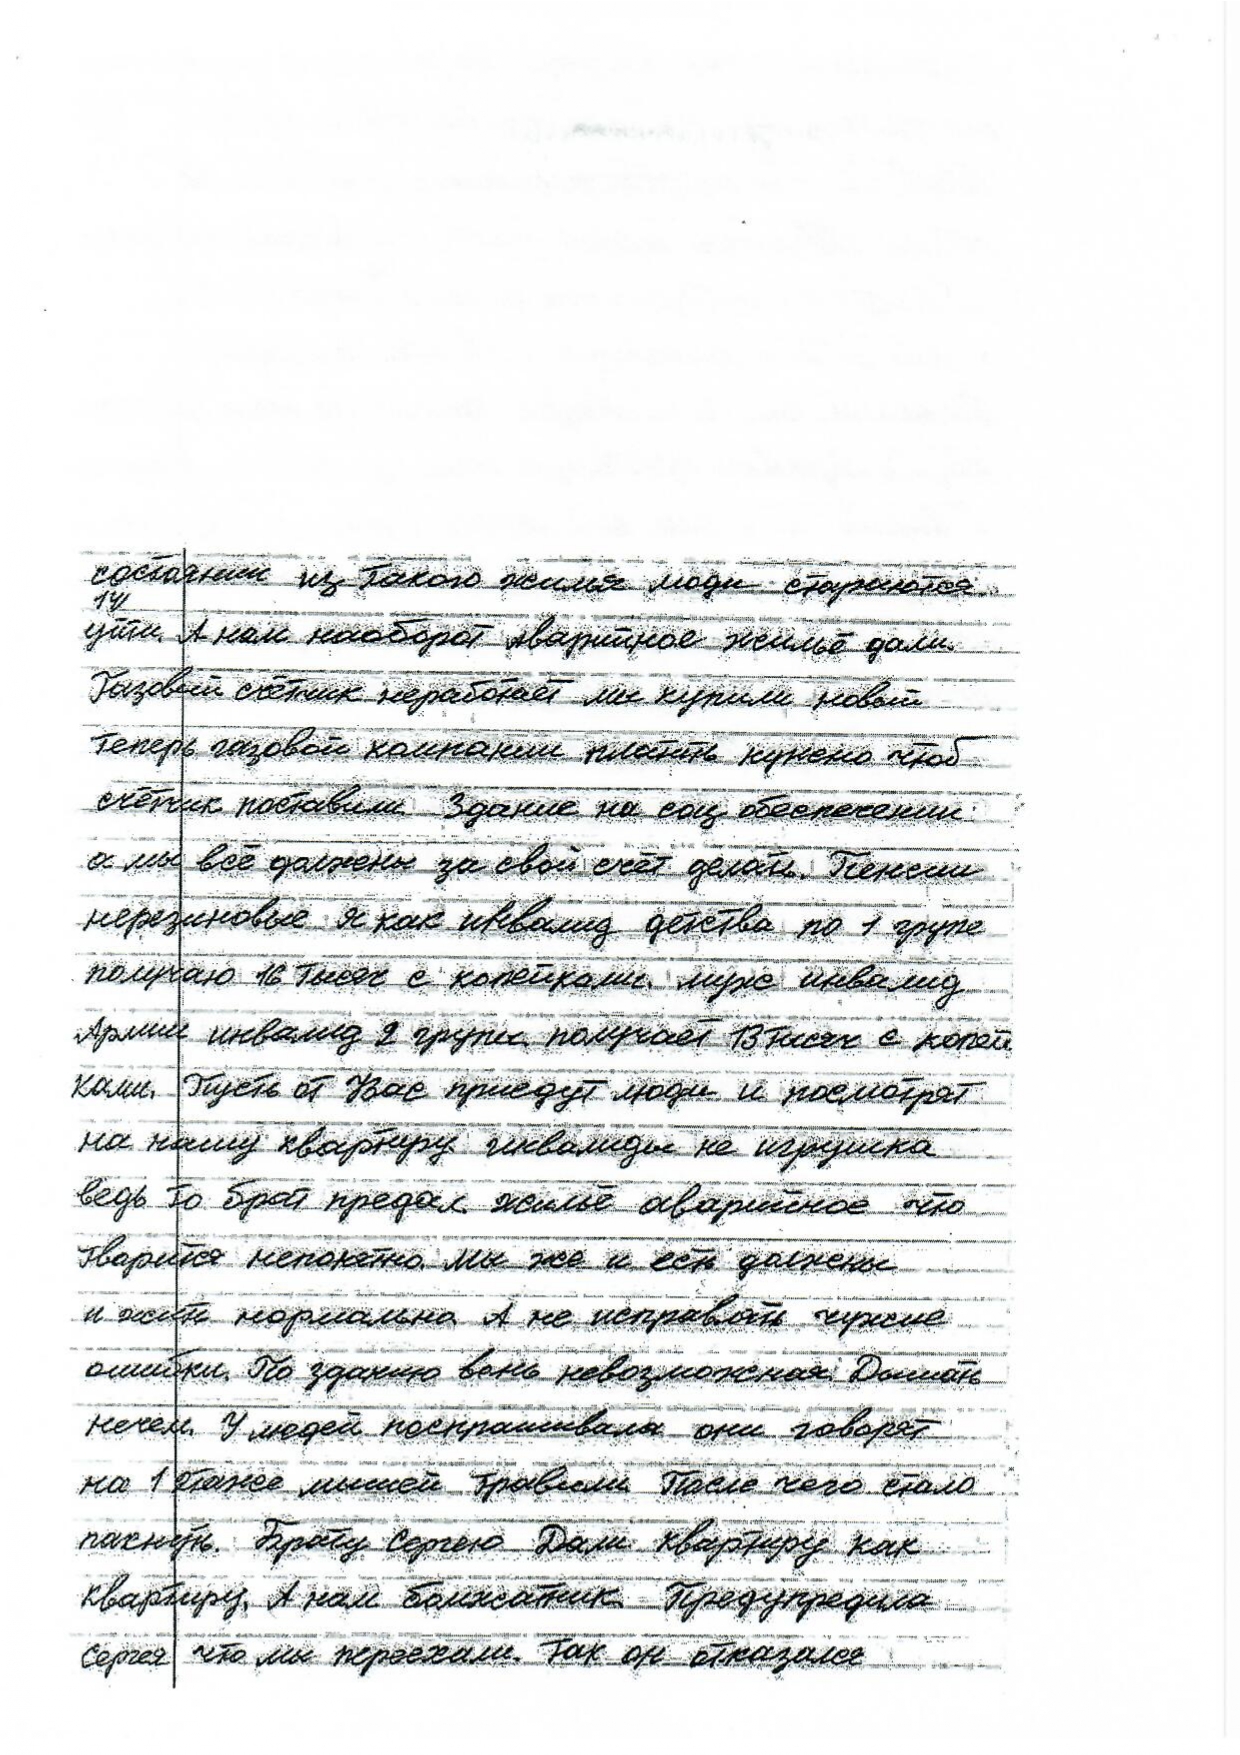 состоянии из такого жилья люди стараются
14
уйти. А нам наоборот аварийное жильё дали.
Газовый счётчик неработает мы купили новый
теперь газовой компании платить нужно чтоб
счётчик поставили. Здание на соц. обеспечении
а мы всё должены за свой счёт делать. Пенсии
нерезиновые я как инвалид детства по 1 групе
получаю 16 тысяч с копейками. муж инвалид
Армии инвалид 2 групы. получает 13 тысяч с копей
ками. Пусть от Вас приедут люди и посмотрят
на нашу квартиру инвалиды не игрушка
ведь то брат предал. жильё аварийное что
творится непонятно. Мы же и есть должены
и жить нормально. А не исправлять чужие
ошибки. По зданию вонь невозможная. Дышать
нечем. У людей поспрашивала они говорят
на 1 этаже мышей травили. После чего стало
пахнуть. Брату Сергею Дали квартиру как
квартиру. А нам бомжатник. Предупредила
Сергея что мы переехали. Так он отказался